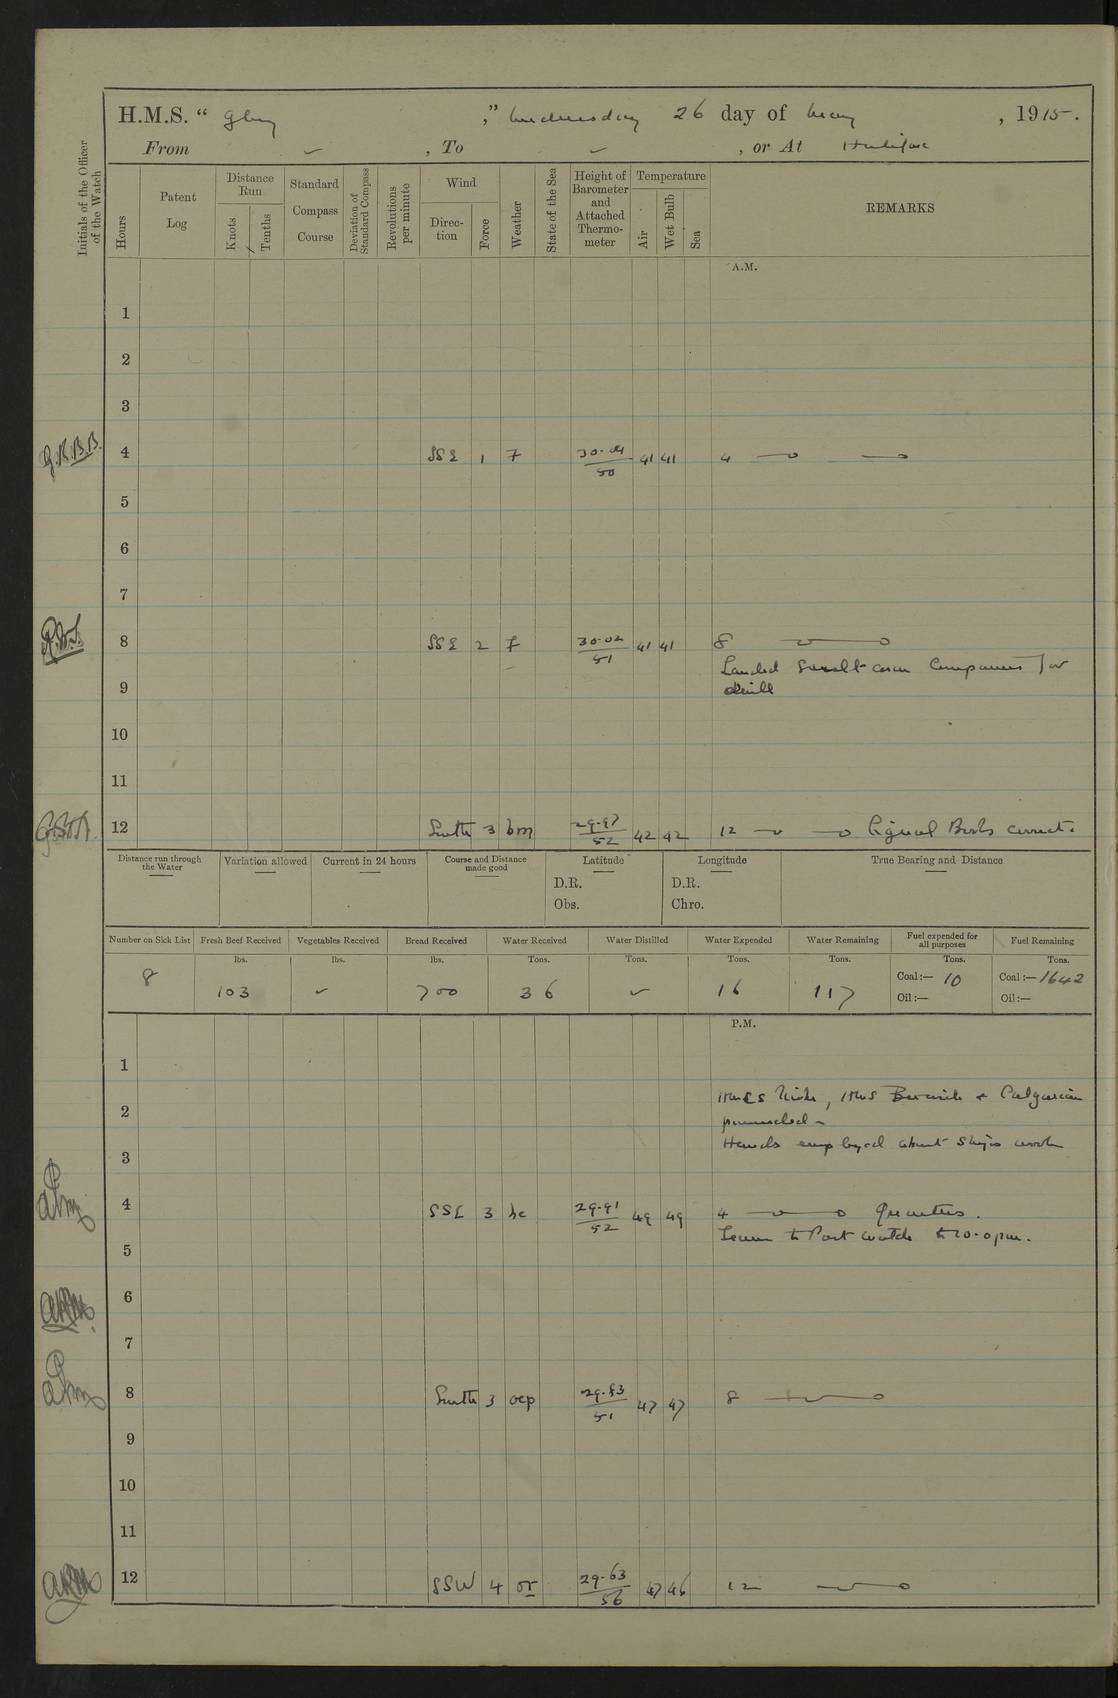 H.M.S. “ Glory ,” Wednesday 26 day of May , 1915.
From ✓ , To ✓ , or At Halifax
Initials of the Officer of the Watch
Hours
Patent Log
Distance Run
Knots
Tenths
Standard Compass Course
Deviation of Standard Compass
Revolutions per minute
Wind
Direc-tion
Force
Weather
State of the Sea
Height of Barometer and Attached Thermo-meter
Temperature
Air
Wet Bulb
Sea
REMARKS
A.M.
1
2
3
4 SSE 1 f 30.04/50 41 41 4
5
6
7
8 SSE 2 f 30.02/51 41 41 8
Landed Small arm Companies for
9 drill
10
11
12 South 3 bm 29.97/52 42 42 12 Signal Books correct.
Distance run through the Water
Variation allowed
Current in 24 hours
Course and Distance made good
Latitude
D.R.
Obs.
Longitude
D.R.
Chro.
True Bearing and Distance
Number on Sick List Fresh Beef Received Vegetables Received Bread Received Water Received Water Distilled Water Expended Water Remaining Fuel expended for all purposes Fuel Remaining
lbs. lbs. lbs. Tons. Tons. Tons. Tons. Tons. Tons.
8 103 ✓ 700 36 ✓ 16 117 Coal:— 10 Coal:— 1642
Oil:— Oil:—
P.M.
1
2 HMCS Niobe, HMS Berwick & Calgarian
proceeded
3 Hands employed about Ships work
4 SSE 3 bc 29.91/52 49 49 4 Quarters.
Leave to Port watch to 10.0 pm.
5
6
7
8 South 3 ocp 29.83/51 47 47 8
9
10
11
12 SSW 4 or 29.63/56 47 46 12